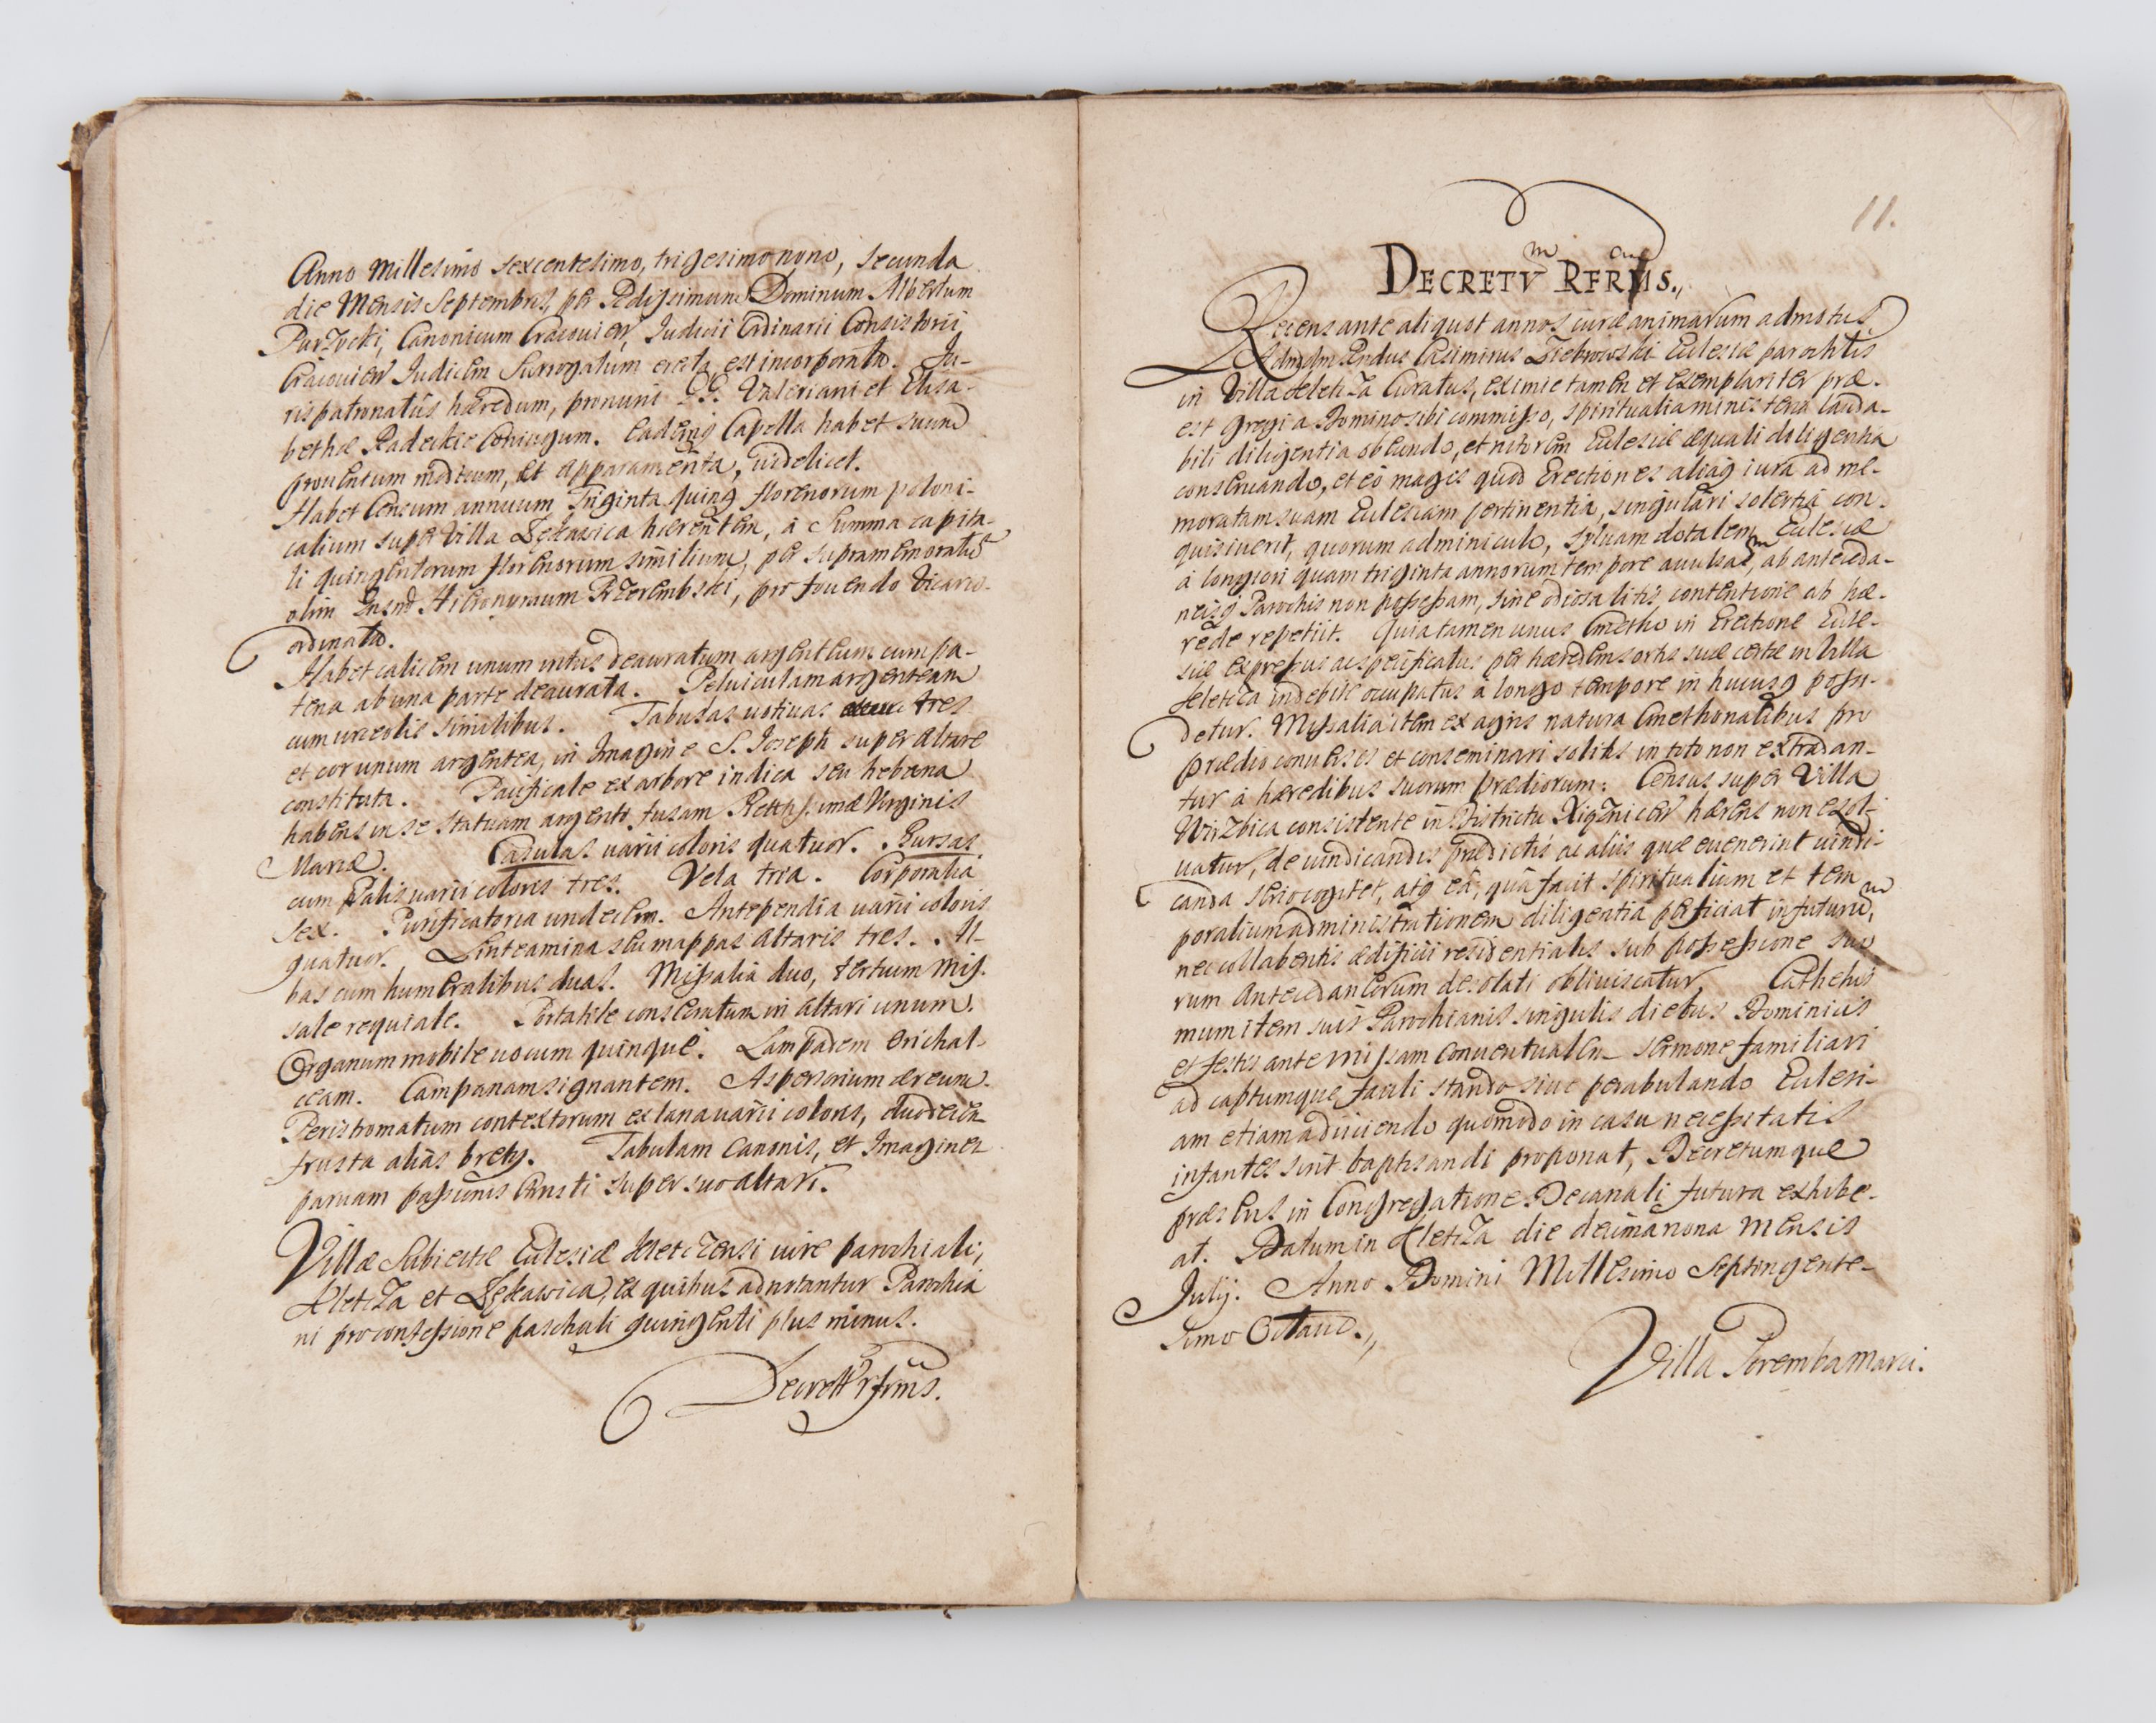 Anno Millesimo sexcentesimo, trigesimo nono, secunda
die Mensis Septembris, per Rdissimum Dominum Albertum
Canonicum Cracouien, Iudicii Ordinarii Consistorii
Cracouien Iudicem Surrogatum erecta est incorporata. Iu-
ris patronatûs hæredum, pronunc GG. Valeriani et Elisa-
bethæ Radeckie Coniugum. Eademq Capella habet suum
prouentum modicum, et apparamenta, uidelicet.
Habet Censum annuum Triginta quinq florenorum poloni-
calium super Villa Łękawica hærentem, à Summa capita-
li quingentorum florenorum similium, per supramemoratũ
olim Hieronymum Przerembski, pro fouendo Vicario
ordinatũ.
Habet calicem unum intus deauratum argenteum cum pa-
tena ab una parte deaurata. Peluiculam argenteam
cum urceolis similibus. Tabulas uotiuas tres
et cor unum argentea, in Imagine S. Ioseph super Altare
constituta. Pacificale ex arbore indica seu hebena
habens in se statuam argento fusam Virginis
Mariæ. Casulas uarii coloris quatuor. Bursas
cum palis uarii coloris tres. Vela tria. Corporalia
sex. Purificatoria undecim. Antependia uarii coloris
quatuor. Linteamina seu mappas altaris tres. Al-
bas cum humeralibus duas. Missalia duo, tertium Mis-
sale requiale. Portatile consecratum in altari unum.
Organum mobile uocum quinque. Lampadem orichal-
ceam. Campanam signantem. Aspersorium æreum.
Peristromatum contextorum ex lana uarii coloris, duodecim
frusta aliâs brety. Tabulam Canonis, et Imaginem
paruam passionis Christi super suo altari.
Villæ Subiectæ Ecclesiæ iure parochiali,
et Łękawica, ex quibus adnotantur Parochia
ni pro confessione paschali quingenti plus minus.
Decrett̃ rfrm̃s.
11.
DECRETVm RFRMS.
Recens ante aliquot annos curæ animarum admotus
Admodm Rndus Casimirus Ecclesiæ parochlis
in Villa Curatus, eximie tamen et exemplariter præ-
est gregi a Domino sibi commisso, spiritualia ministeria lauda-
bili diligentia obeundo, et nitorem Ecclesiæ æquali diligentia
conseruando, et eò magis quod Erectiones aliaq iura ad me-
moratam suam Ecclesiam pertinentia, singulari solertiâ con-
quisiuerit, quorum adminiculo, syluam dotalem Ecclesiæ
à longiori quam triginta annorum tempore auulsam, ab anteceda-
neisq Parochis non possessam, sine odiosa litis contentione ab hæ-
rede repetiit. Quia tamen unus Cmetho in Erectione Eccle-
siæ expressus ac specificatus per hæredem sortis suæ certæ in Villa
indebite occupatus à longo tempore in hucusq possi-
detur. Missalia item ex agris natura Cmethonalibus pro
prædio conuersis et conseminari solitis in toto non extradan-
tur à hæredibus suorum prædiorum: Census super Villa
Wirzbica consistente in Districtu Xiąznicen hærens non exol-
uatur, de uindicandis prædictis ac aliis quæ euenerint uindi-
canda serio cogitet, atq eâ, quâ facit spiritualium et tem
poralium administrationem diligentia perficiat in futurum,
nec collabentis ædificii residentialis sub possessione suo
rum Antecedaneorum desolati obliuiscatur. Cathehis
mum item suis Parochianis singulis diebus Dominicis
et festis ante missam Conuentualem sermone familiari
ad captumque facili stando siue perabulando Ecclesi-
am etiam adiiciendo quomodo in casu necessitatis
infantes sint baptisandi proponat, Decretumque
præsens in Congregatione Decanali futura exhibe-
at. Datum in die decimanona Mensis
Julij. Anno Domini Millesimo Septingente-
simo Octauo.
Villa Porembamarci.